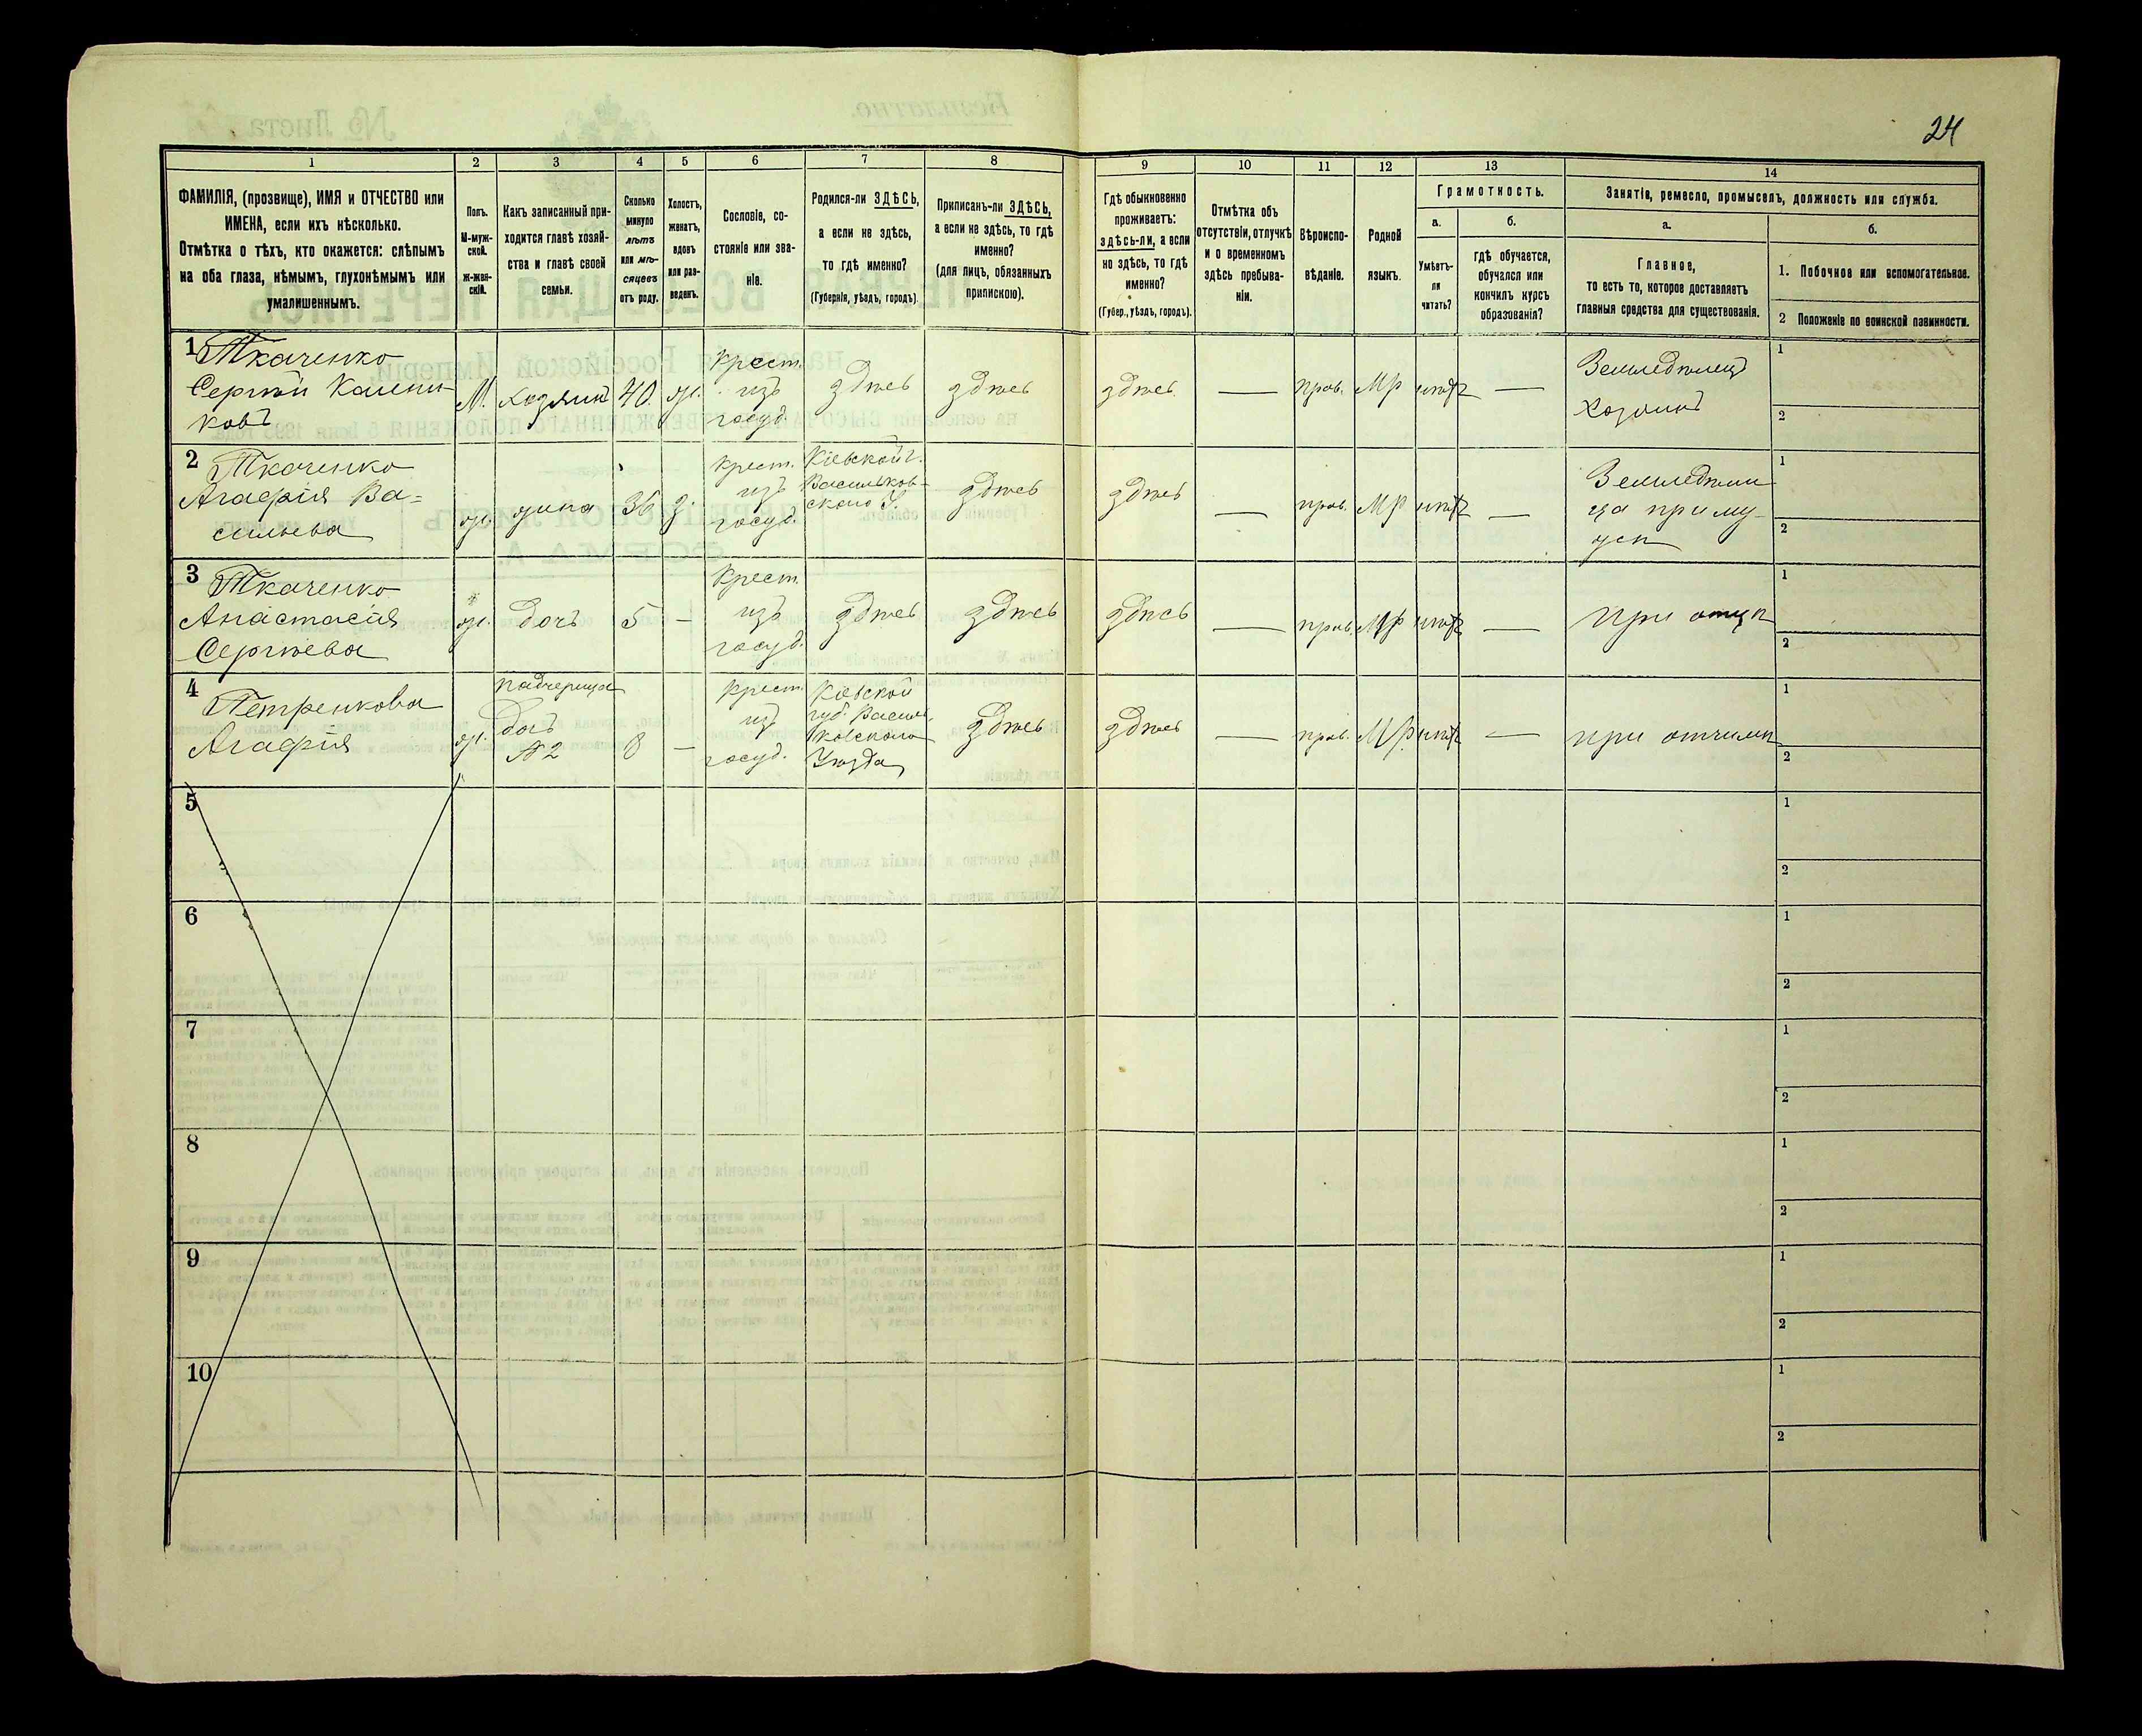 24
1
2
3
4
5
6
7
8
9
10
11
12
13
14
ФАМИЛІЯ, (прозвище), ИМЯ и ОТЧЕСТВО или
ИМЕНА, если ихъ нѣсколько.
Отмѣтка о тѣхъ, кто окажется: слѣпымъ
на оба глаза, нѣмымъ, глухонѣмымъ или
умалишеннымъ.
Полъ.
М-муж-
ской.
Ж-жен-
скій.
Какъ записанный при-
ходится главѣ хозяй-
ства и главѣ своей
семьи.
Сколько
минуло
лѣтъ
или мѣ-
сяцевъ
отъ роду.
Холостъ,
женатъ,
вдовъ
или раз-
веденъ.
Сословіе, со-
стояніе или зва-
ніе.
Родился-ли ЗДѢСЬ,
а если не здѣсь,
то гдѣ именно?
(Губернія, уѣздъ, городъ).
Приписанъ-ли ЗДѢСЬ,
а если не здѣсь, то гдѣ
именно?
(для лицъ, обязанныхъ
припискою).
Гдѣ обыкновенно
проживаетъ:
здѣсь-ли, а если
не здѣсь, то гдѣ
именно?
(Губер., уѣздъ, городъ).
Отмѣтка объ
отсутствіи, отлучкѣ
и о временномъ
здѣсь пребыва-
ніи.
Вѣроиспо-
вѣданіе.
Родной
языкъ.
Грамотность.
а.
Умѣетъ-
ли
читать?
б.
гдѣ обучается,
обучался или
кончилъ курсъ
образованія?
Занятія, ремесло, промыселъ, должность или служба.
а.
Главное,
то есть то, которое доставляетъ
главныя средства для существованія.
б.
1. Побочное или вспомогательное.
2 Положеніе по воинской повинности.
1 Ткаченко
Сергѣй Калени-
ковъ
М.
хозяинъ
40.
ж.
Крест.
изъ
госуд.
здѣсь
здѣсь
здѣсь
—
прав.
МР
нѣтъ
—
Земледѣлецъ
Хозяинъ
1
2
2 Ткаченко
Агафія Ва=
сильева
ж.
жена
36
з.
Крест.
изъ
госуд.
Кіевской г.
Васильков-
скаго У.
здѣсь
здѣсь
—
прав.
МР
нѣтъ
—
Земледѣли
ца при му-
жѣ
1
2
3 Ткаченко
Анастасія
Сергѣева
ж.
дочь
5
—
Крест.
изъ
госуд.
здѣсь
здѣсь
здѣсь
—
прав.
МР
нѣтъ
—
при отцѣ
1
2
4 Петренкова
Агафія
ж.
падчерица
дочь
№2
8
—
Крест.
изъ
госуд.
Кіевской
губ. Василь
ковскаго
Уѣзда
здѣсь
здѣсь
—
прав.
МР.
нѣтъ
—
при отчимѣ
1
2
5
1
2
6
1
2
7
1
2
8
1
2
9
1
2
10
1
2